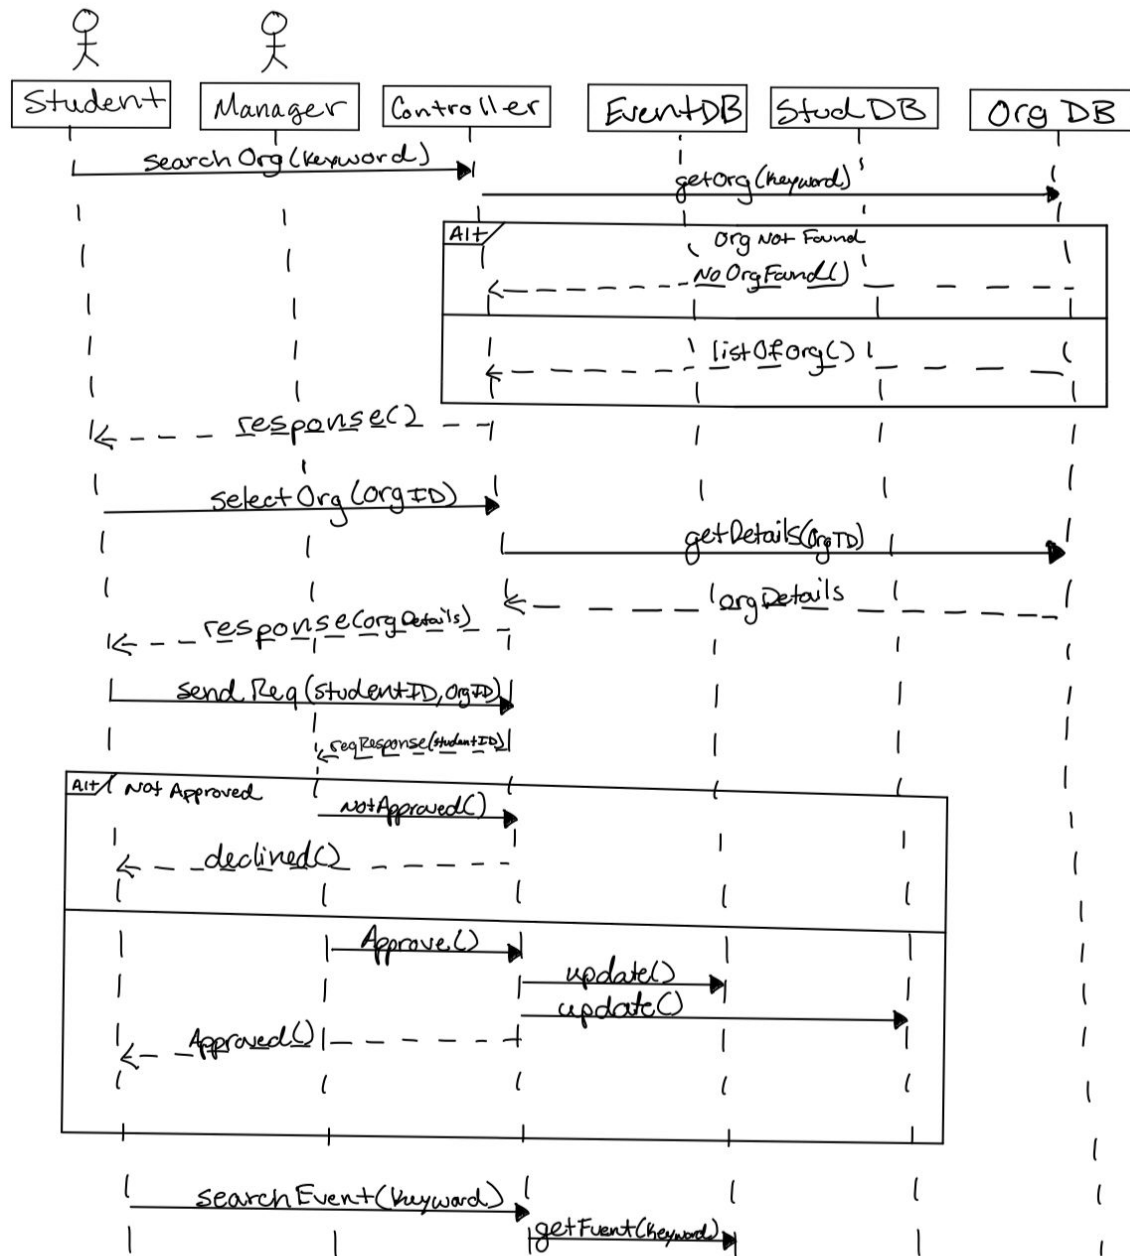 Student
Manager
Controller
EventDB
Stud DB
Org DB
searchOrg(keyword)
getOrg(keyword)
Alt
Org Not Found
NoOrgFound()
listOfOrg()
response()
selectOrg(orgID)
getDetails(OrgID)
orgDetails
response(orgDetails)
sendReq(studentID, orgID)
reqResponse(studentID)
Alt
Not Approved
NotApproved()
declined()
Approve()
update()
update()
Approved()
searchEvent(keyword)
getEvent(keyword)